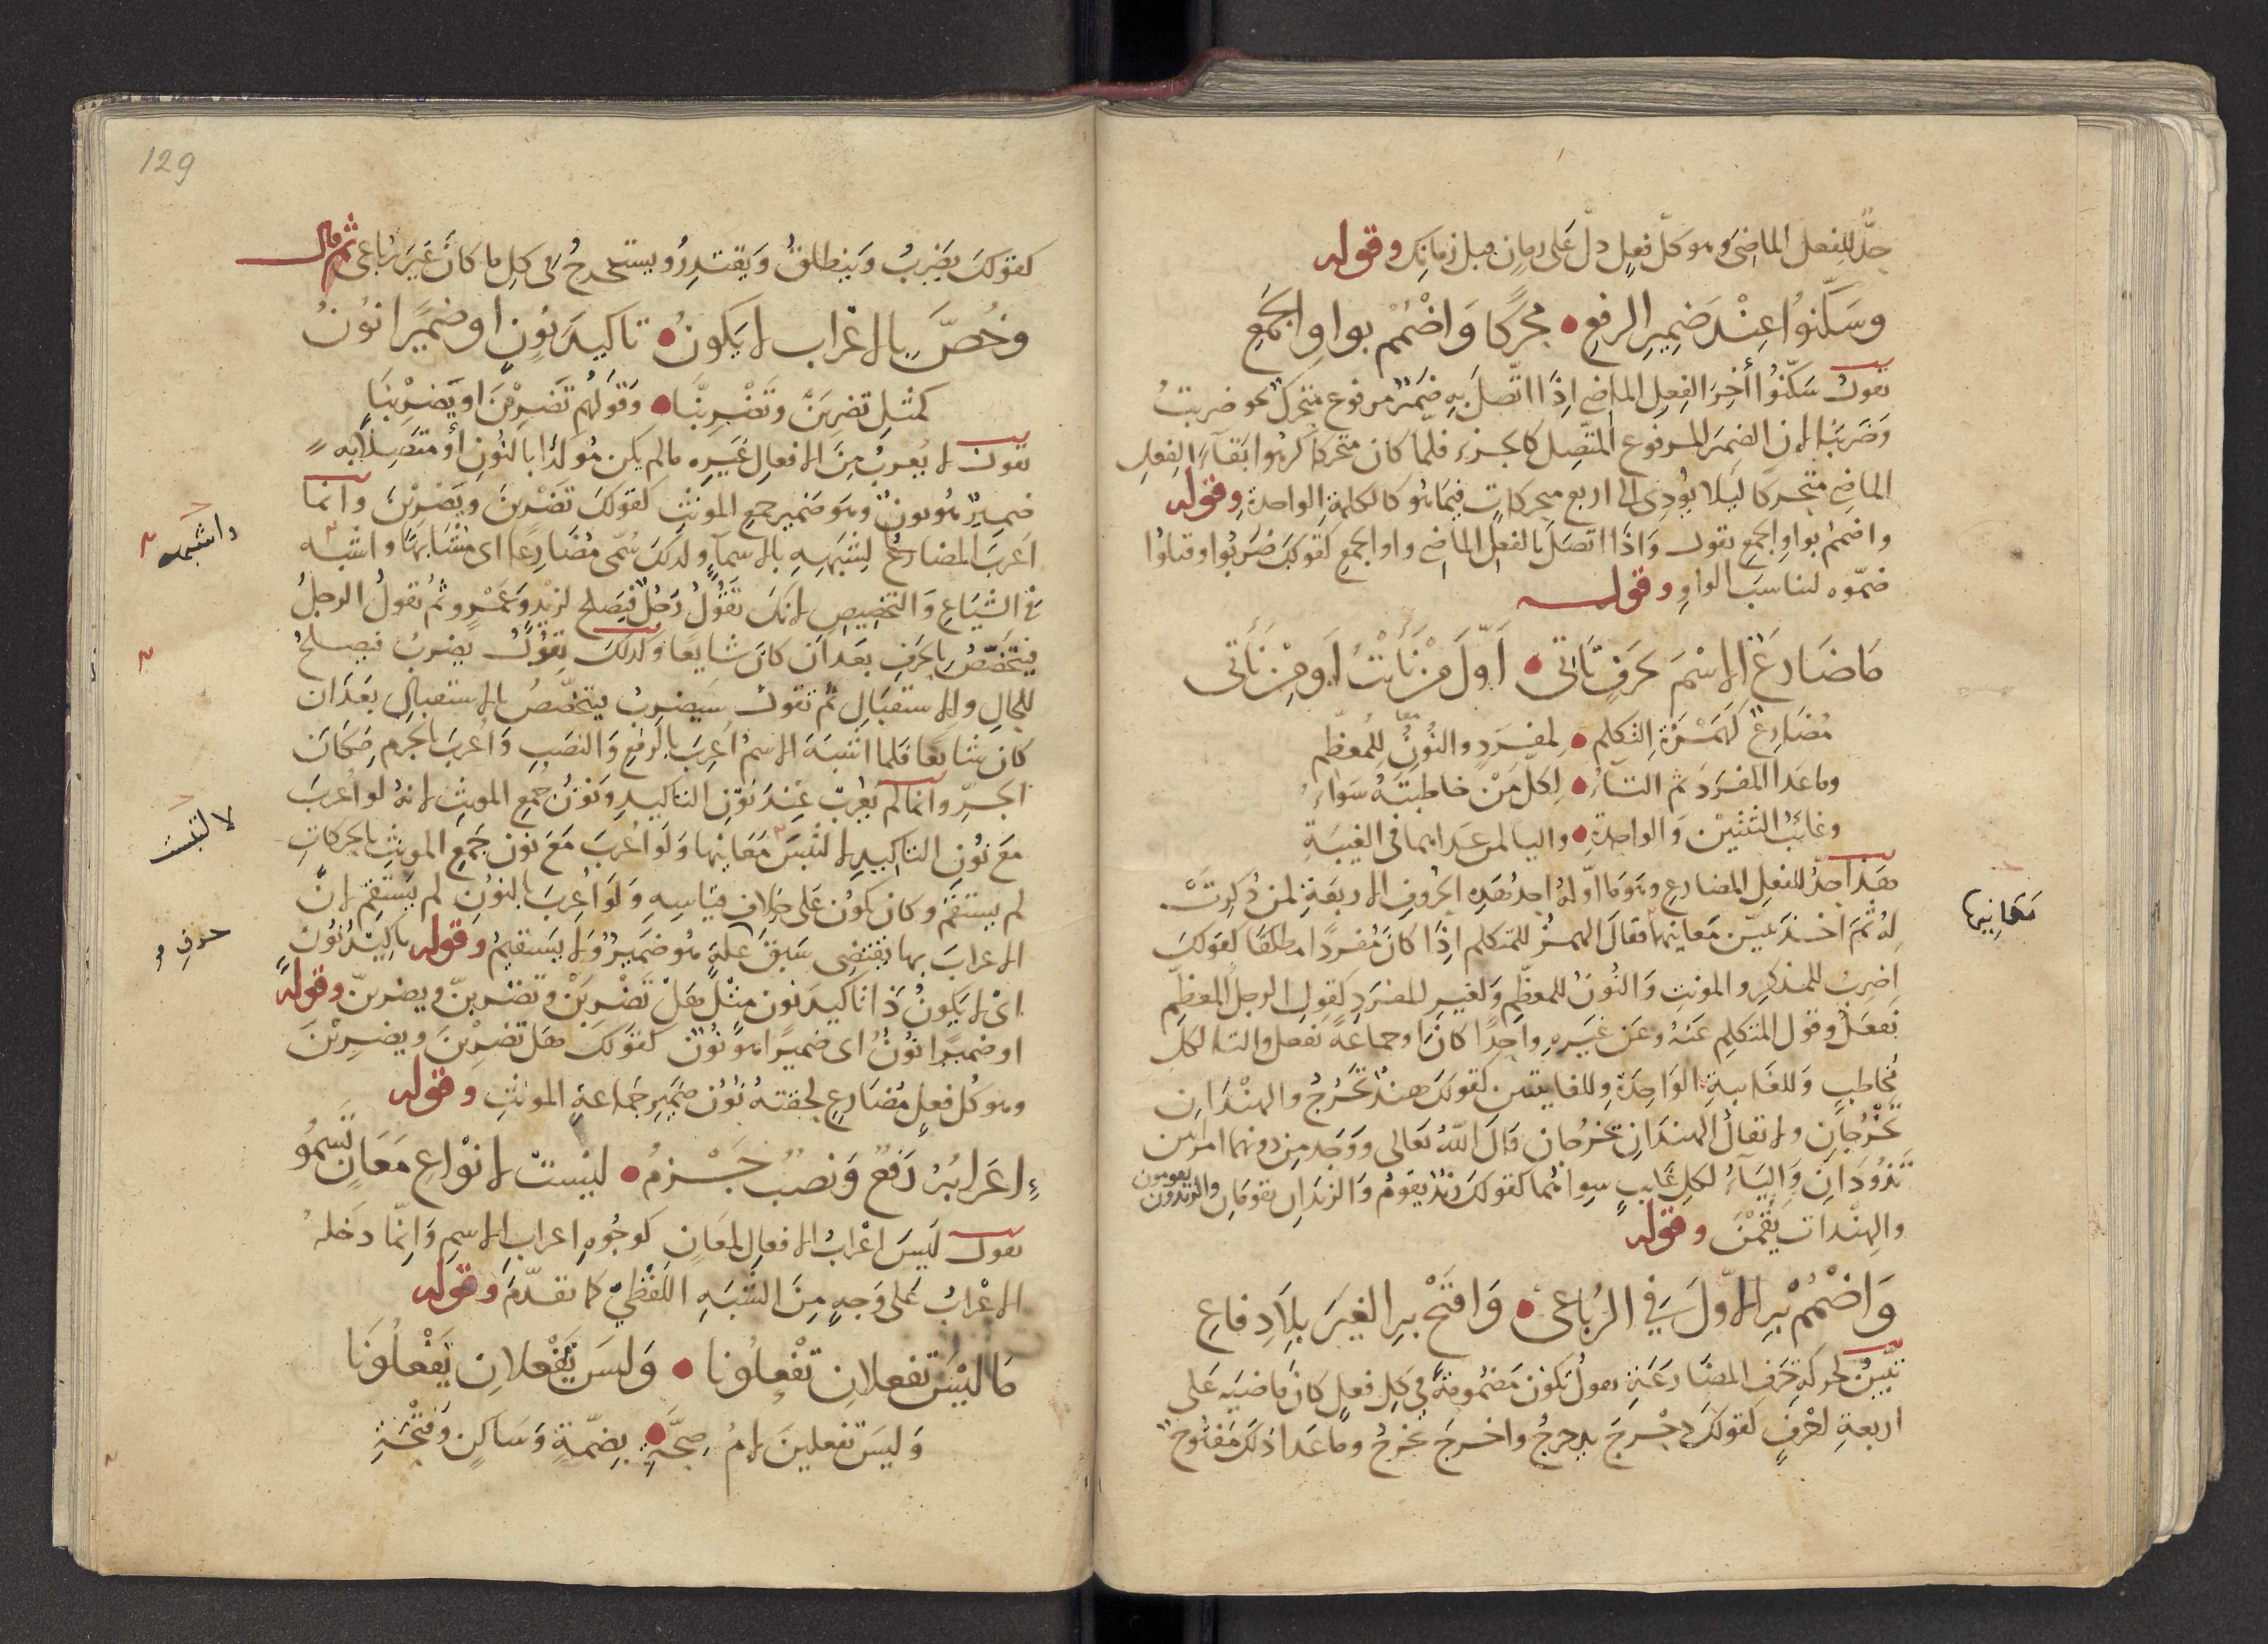 حدّ للفعل الماضى وهو كلّ فعلٍ دلّ على زمانٍ قبل زمانك وقوله
وسَكّنوُا عِنْدَ ضَمِيرِ الرفع • محركًا وَاضْمُمْ بواوِ الجَمعِ
تقول سَكّنُوا أخِرَ الفعِلِ الماضى اِذَا اتّصَلَ بِهِ ضَميرٌ مرفوع متحركٌ نحو ضربتُ
وَضَرَبنَا لان الضميرَ المرفوع المتّصِل كالجزء فلمّا كان متحركا كرهوا بَقآءَ الفعلِ
الماضى متحركًا ليلا يؤدى الى اربع متحركاتٍ فيماهو كالكلمة الواحدة وقوله
واضمم بواوِ الجمعِ تقول وَاذَا اتصَلَ بالفعل الماضى واو الجمعِ كقولك ضَرَبُوا وقتلوا
ضمّوه لتناسب الواوِ وقوله
مَاضَارعَ الاِسْمَ بحَرفٍ يَاتى • اَوّلَ مِنْ نَأَيْتُ اَو مِنْ نَأتى
مُضَارِعٌ كَهَمْزَةِ التكلم • لمفرَدٍ والنُونُ لِلمُعظّم
وماعَدا المفرَدَ ثم التآءُ • لِكلّ مَنْ خاطبتَهُ سَوَاءُ
وغائبُ الثنتيْن وَالواحدةِ • واليا لمن عَداهما فى الغيبَةِ
هَذا حدُّ للفعِل المضارعِ وهوَ ما اوّلهُ احدُ هَذِهِ الحُروفِ الاربَعَةِ لمن ذُكِرَتْ
لهُ ثمَ اخَذَ يبيّن مَعَانيها فقالَ الهمزُ للمتكلم اِذَا كانَ مُفرَدًا مطلقًا كقولك
اضربُ للمذكرِ والمونثِ وَالنُونُ للمعظّمِ وَلغيرِ المفرَدِ كقولِ الرجلِ المعظّم
نَفعَلُ وقول المتكلم عَنهُ وعَن غيَرهِ واحِدًا كان اَو جماعَةً نفعل والتا لكلّ
مُخاطَبٍ وَللغَايبةِ الوَاحِدَةِ وللغايبتين كقولكَ هِندٌ تَخْرُجُ والهنْدَانِ
تخْرُجَانِ ولا يقالُ الهندَانِ يخرُجان قالَ اللهُ تعالى ووَجَدَ مِن دونهما امراتين
تَذُودَانِ وَاليَآءُ لكلِ غَايبٍ سِواهُما كقولكَ زيدٌ يقومُ وَالزيدَانِ يقومَانِ والزيدُونَ يقومون
والهِنْدات يَقُمْنَ وقوله
وَاضْمُمْ بِهِ الاوّلَ في الرُبَاعى • وَافتَحْ بهِ الغيرَ بِلَا دِفاعِ
تَبيينٌ لحركةِ حَرفِ المضَارَعَةِ تقولُ تكون مَضمُومَةً في كلِ فعلٍ كانَ مَاضيَه عَلى
اربعةِ احْرفٍ كقولكَ دحْرَجَ يدحرجُ واخرَجَ يخرجُ وماعَدا ذلكَ مَفتُوحٌ
مَعَانِيها
129
كقولكَ يَضرِبُ وَينطلقُ وَيقتدِرُ ويستخرجُ فى كلِ ما كانَ غيرَ رُباعى ثم قال
وخُصَّ بالاعْرابِ لا يَكونُ • تاكيدَ نُونٍ او ضميرًا نُونُ
كمثلِ تضرِبَنْ وتَضْرِبَنَّا • وَقولهم تَضرِبْنَ او يَضرِبْنَا
تقول لا يُعربُ مِنَ الافعالِ غَيرِه مالم يكن مُوكدًا بالنُونِ أو متصِلًا به
ضميرٌ هُونونٌ وهوَ ضَميرُ جمعِ المونثِ كقولكَ تَضْربْنَ ويَضْرِبْنَ وَانما
اعربَ المضارعُ لِشبَهِهِ بالاسمآءِ ولذلكَ سُمّى مُضَارِعًا اى مُشَابهًا واشبه
فى الشيَاعِ وَالتخصيصِ لانكَ تَقُولُ رَجُلٌ فيَصلح لزيْدٍ وَعَمْرٍو ثمُ تقولُ الرجلُ
فيتخَصّصُ بالحَرفِ بعَدان كانَ شايعًا وَكذلكَ تقولُ يضربُ فيصلحُ
للحالِ والاستقبَالِ ثم تقول سَيَضرِبُ يتخصّصُ بالاستقبالِ بعَدَان
كان شايعًا فَلما اشبَهَ الاسمَ اُعرِبَ بالرفعِ وَالنصبِ وَاُعربَ بالجزم مكَان
الجرّ وانما لم يُعرب عِندَ نُونِ التاكيدِ وَنُون جمعِ المونثِ لانهُ لو اُعربَ
مَعَ نُونِ التاكيدِ لالتَبسَ مَعَانيها وَلَو اُعربَ مَعَ نون جمَعِ المونثِ بالحركاتِ
لم يستقِم وكان يكُون عَلى خِلاف قيَاسِهِ وَلَو اُعربَ بالنونِ لم يَستقِم لانّ
الاعرابَ بها يقتضِى سَبقَ علّةٍ هُو ضَميرٌ وَلا يَستقيمُ وقوله تاكيْدَ نُون
اىْ لا يكُونُ ذَا تاكيدَ نون مِثْل هَلْ تَضْربَنْ وتضرِبنّ ويضربنّ وقوله
او ضميرًا نُونُ اى ضميرًا هُو نُونٌ كقولكَ هَل تضرِبْنَ ويضرِبْنَ
وهوكُل فعلٍ مُضَارِعٍ لحقتهُ نُونُ ضَميرِ جَماعةِ المونثِ وقوله
اِعَرابُهُ رَفعٌ وَنصبٌ جَزمُ • ليْستْ لانْوَاعِ مَعَانٍ تَسمُو
تقول ليَسَ اعْرابُ الافعالِ لمعَانٍ كوجُوهِ اعرابِ الاسمِ وَانّما دَخَلهُ
الاعْرابُ عَلى وَجهٍ مِنَ الشّبَهِ اللّفظيّ كما تقدّمَ وقوله
مَا ليْسَ تفعلانِ تفْعِلُونا • وَليسَ يَفْعلانِ يَفْعلُونَا
وَليسَ تفعلينَ لامُ صِحَّةِ • بِضمّةٍ وَسَاكنٍ وَفتْحَةِ
واشبهه
لالتبست
حرفٍ و